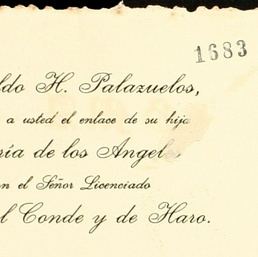 1683
ldo H. Palazuelos,
a usted el enlace de su hija
ría de los Angeles
on el Señor Licenciado
l Conde y de Haro.